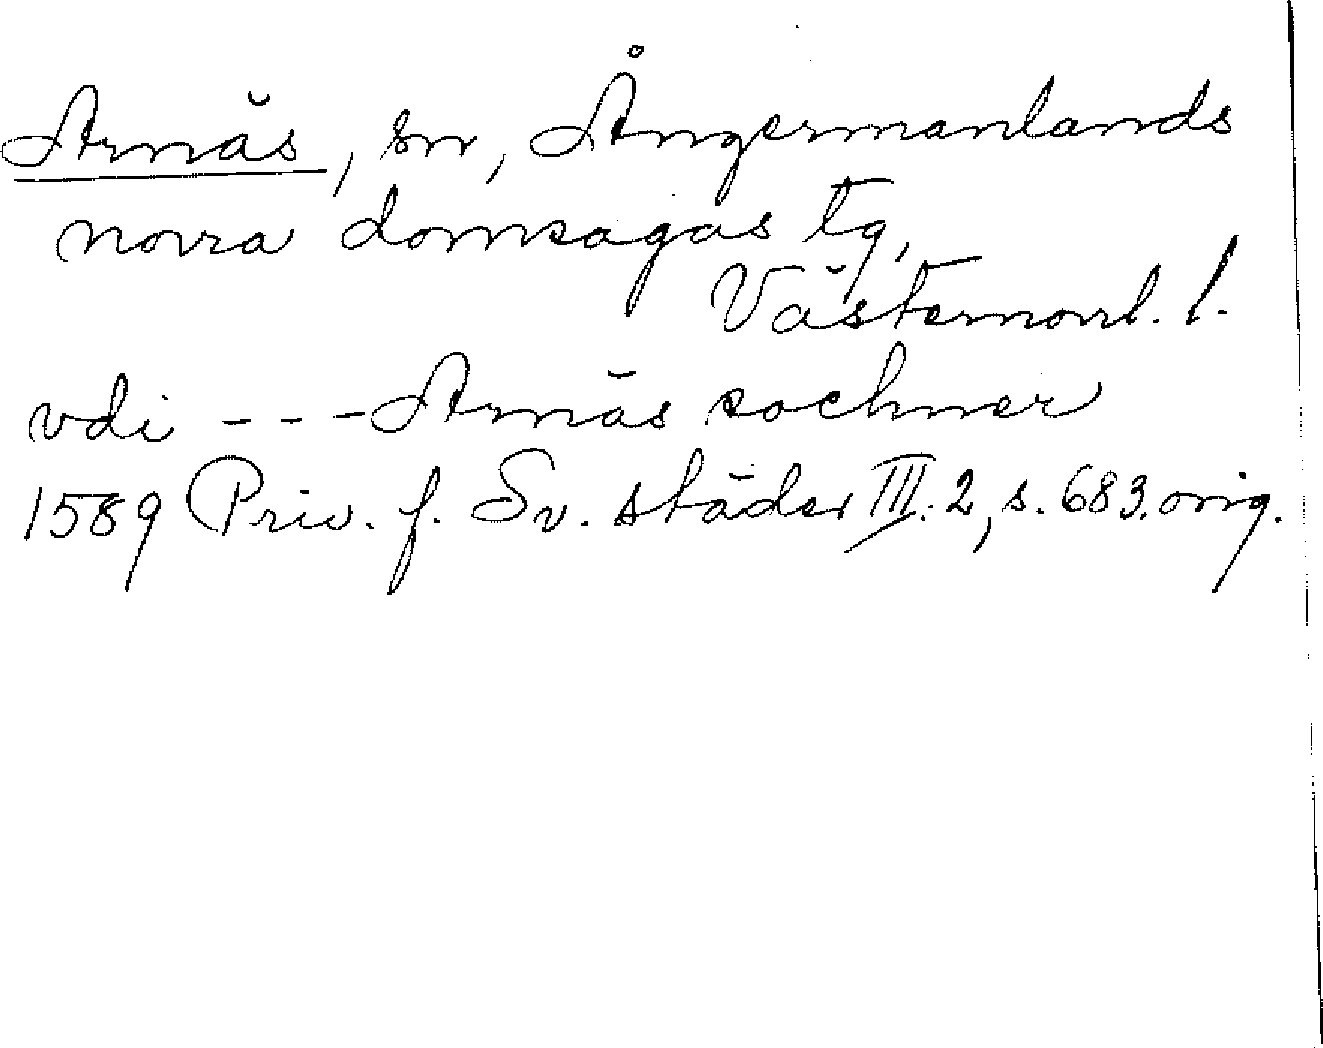 Arnäs, sn, Ångermanlands
norra domsagas tg,
Västernorrl. l.
vdi - - - Arnäs sochner
1589 Priv. f. Sv. städer III:2, s. 683. orig.